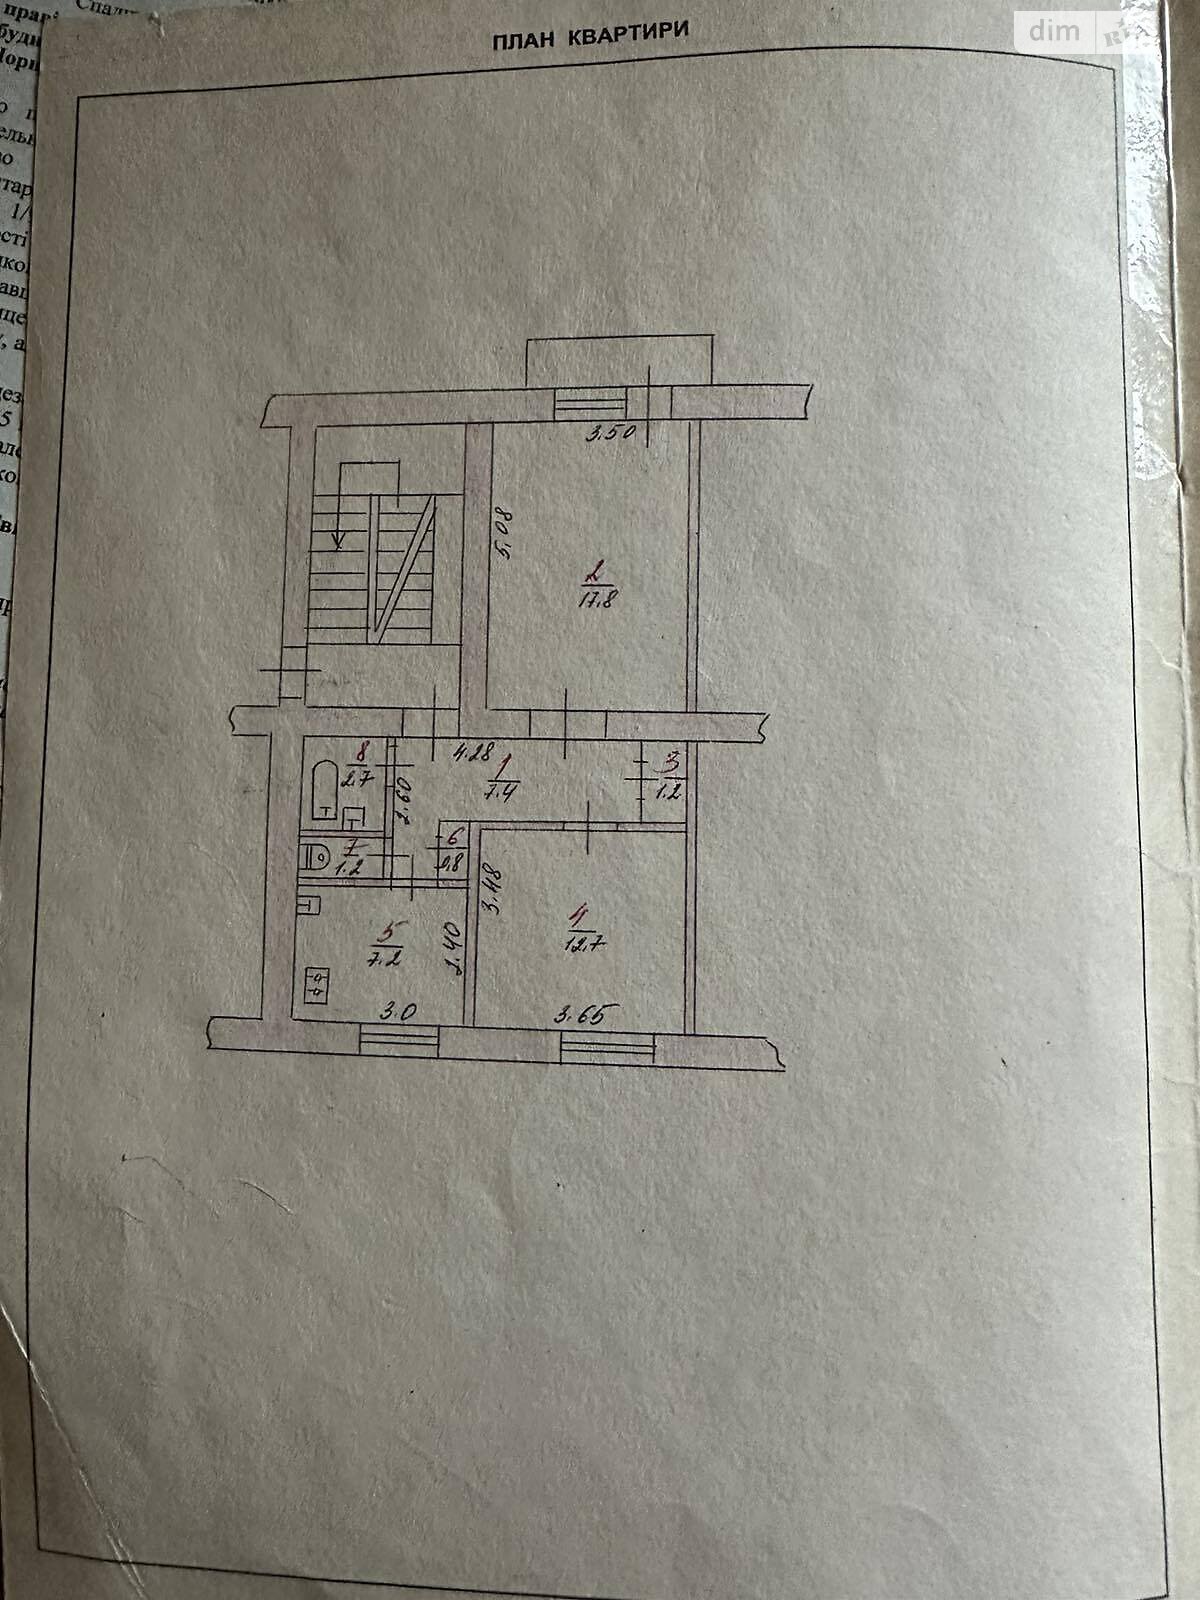 ПЛАН КВАРТИРИ
dim
3.50
5.08
2
17.8
8
2.7
4.28
1
7.4
3
1.2
2.60
6
0.8
7
1.2
3.48
4
12.7
5
7.2
2.40
3.0
3.65